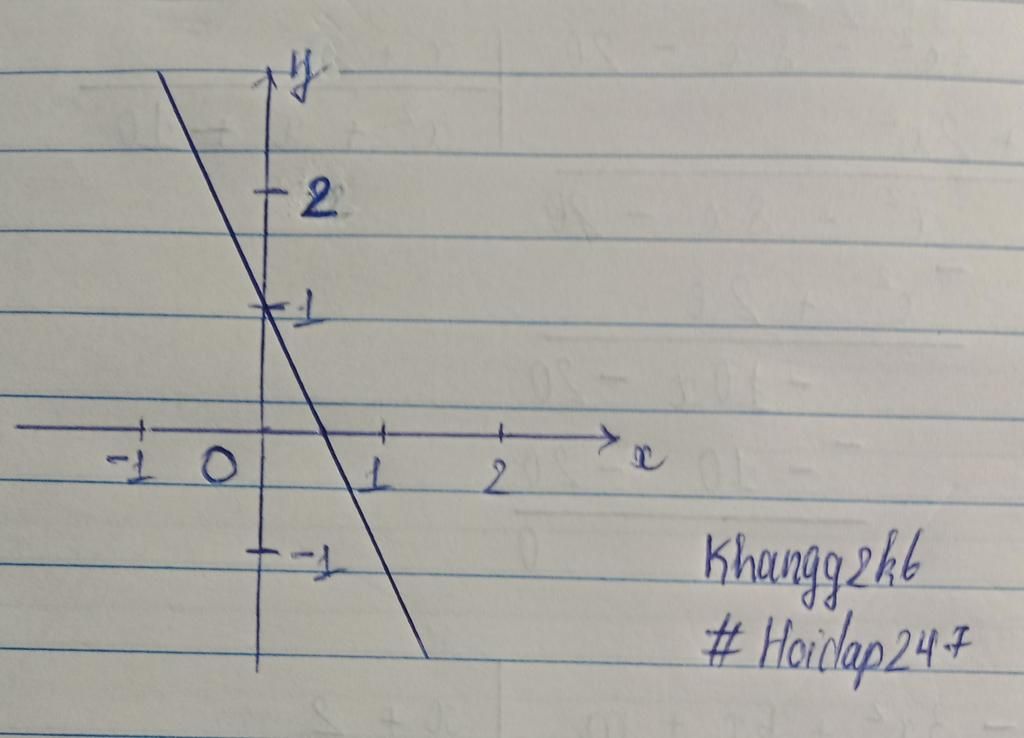 y
2
1
-1 O 1 2 x
-1
Khangg2k6
# Hoidap247